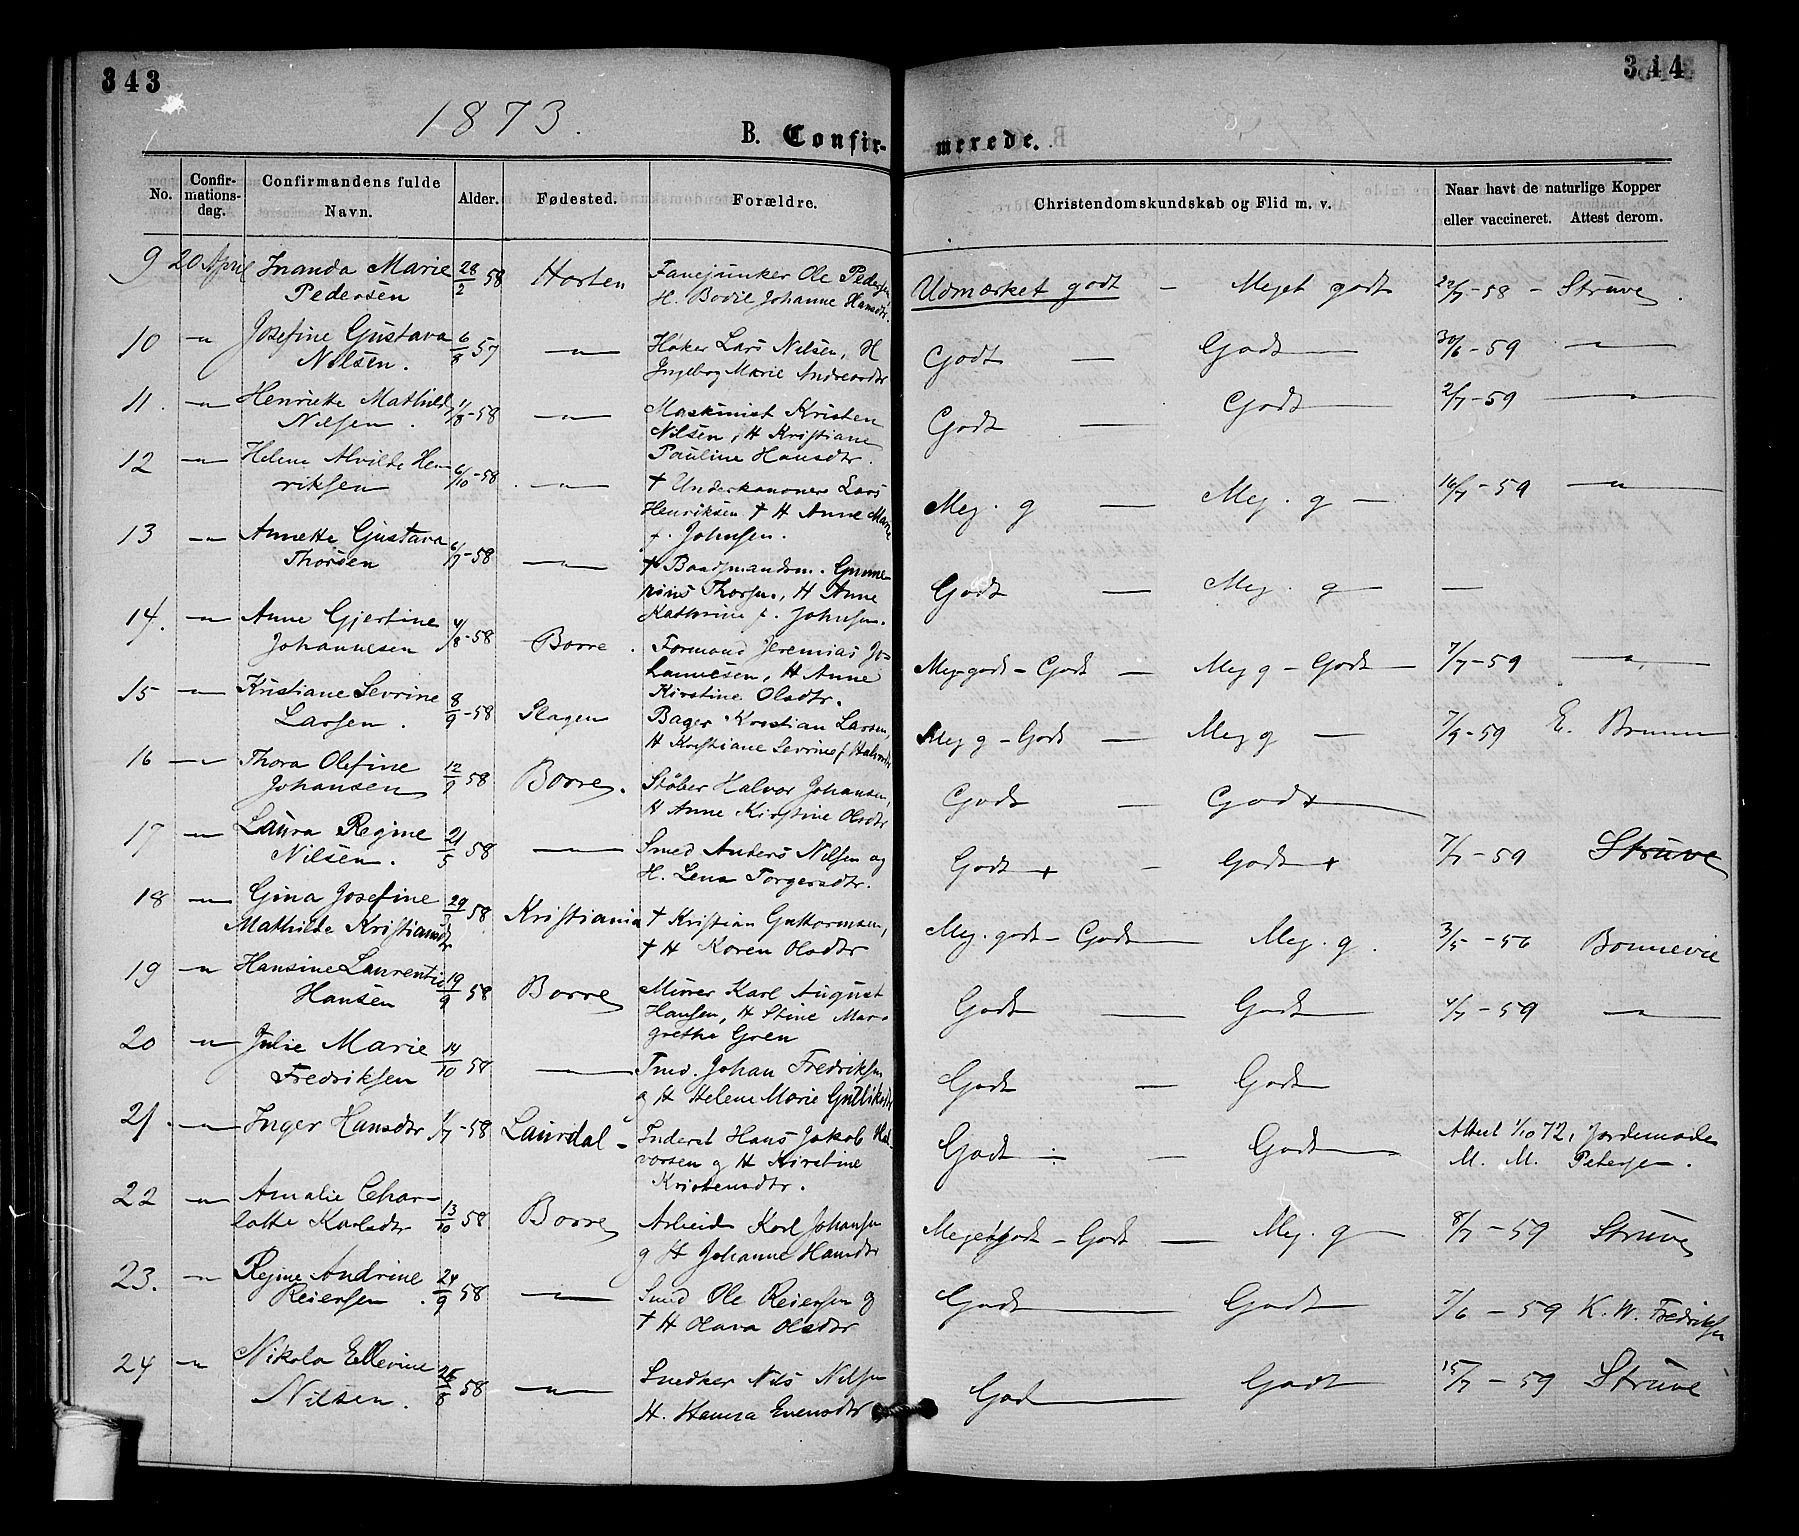 343
344
1873.
B. Confir-
merede.
No.
Confir-
mations-
dag.
Confirmandens fulde
Navn.
Alder.
Fødested.
Forældre.
Christendomskundskab og Flid m. v.
Naar havt de naturlige Kopper
eller vaccineret. Attest derom.
9 20 April Inanda Marie 28/2 58 Horten Fanejunker Ole Pedersen
Pedersen H. Bodil Johanne Hansdtr.
Udmærket godt – Meget godt 22/7-58 – Struve.
10 –"– Josefine Gustava 6/8 57 –"– Høker Lars Nilsen, H
Nilsen. Ingebrg Marie Andreasdtr
Godt — Godt 30/6-59 –"–
11. –"– Henriette Mathilde 11/8-58 –"– Maskinist Kristen
Nilsen. Nilsen, H Kristiane
Pauline Hansdtr.
Godt — Godt 2/7-59 –"–
12 –"– Helene Alvilde Hen- 6/10-58 –"– † Underkanoner Lars
riksen Henriksen † H Anne Marie
f. Johnsen.
Meg. g — Meg. g — 16/7-59 –"–
13 –"– Annette Gustava 6/9-58 –"– † Baadsmandsm. Gunne-
Thorsen rius Thorsen, H Anne
Kathrine f. Johnsen.
Godt — Meg. g —
14. –"– Anne Gjertine 4/8-58 Borre. Formand Jeremias Jo-
Johannesen hannesen, H Anne
Kirstine Olsdtr.
Meg. godt – Godt — Meg g – Godt 7/7-59 –"–
15 –"– Kristiane Sevrine 8/9-58 Slagen Bager Kristian Larsen,
Larsen. H Kristiane Sevrine f. Halvordtr
Meg g – Godt — Meg g — 7/9-59 E. Bruun
16 –"– Thora Olefine 12/9 58 Borre. Støber Halvor Johansen,
Johansen H Anne Kirstine Olsdtr
Godt — Godt +
17 –"– Laura Regine 21/5 58 –"– Smed Anders Nilsen og
Nilsen. H. Lena Torgersdtr.
Godt + — Godt + 7/7-59 Struve
18 –"– Gina Josefine 29/ 58 Kristiania † Kristian Guttormsen,
Mathilde Kristiansdtr † H Karen Olsdtr
Meg. godt – Godt Meg. g. 3/5-56 Bonnevie
19 –"– Hansine Laurentie 19/9 58 Borre Murer Karl August
Hansen Hansen, H Stine Mar-
grethe Gren
Godt Godt 4/7-59 –"–
20 –"– Julie Marie 14/10 58 –"– Tmd. Johan Fredriksen
Fredriksen g H Helene Marie Gulliksdtr
Godt — Godt
21. –"– Inger Hansdtr 1/7-58 Laurdal – Inderst Hans Jakob Hal-
vorsen g H Kirstine
Kristensdtr.
Godt — Godt Attest 1/10 72, Jordemoder
M. M. Petersen.
22 –"– Amalie Char- 13/10 58 Borre Arbeider Karl Johansen
lotte Karlsdtr g H Johanne Hansdtr
Meget godt – Godt — Meg. g 8/7-59 Struve
23. –"– Regine Andrine 24/9 58 –"– Smed Ole Reiersen g
Reiersen. † H Olava Olsdtr
Godt Godt 7/6-59 K. W. Fredriksen
24 –"– Nikola Ellevine 25/8 58 –"– Snedker Nils Nilsen
Nilsen. H. Hanna Evensdtr
Godt Godt 15/7-59 Struve